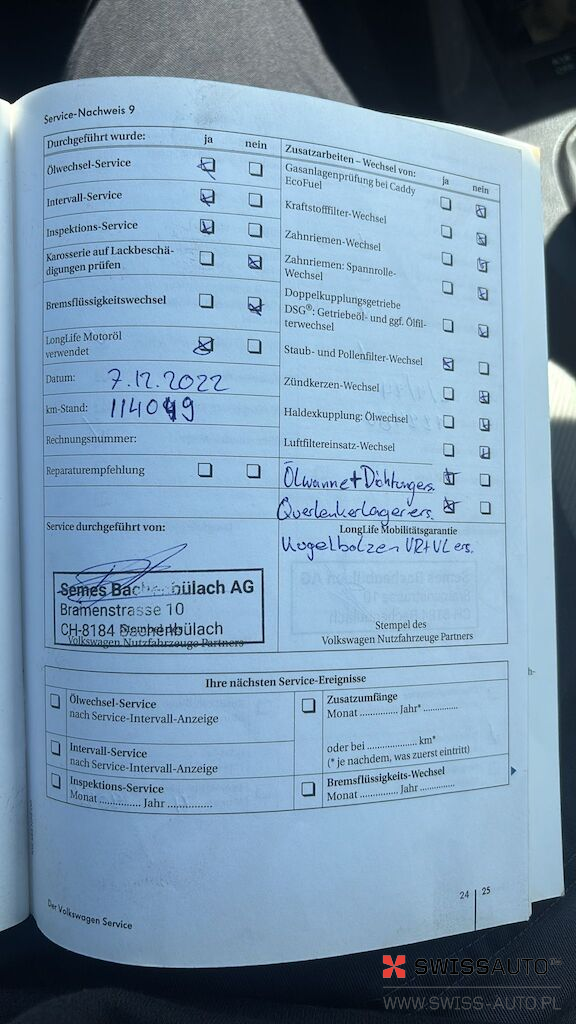 Service-Nachweis 9
Durchgeführt wurde: ja nein
Ölwechsel-Service
Intervall-Service
Inspektions-Service
Karosserie auf Lackbeschä-
digungen prüfen
Bremsflüssigkeitswechsel
LongLife Motoröl
verwendet
Datum: 7.12.2022
km-Stand: 114049
Rechnungsnummer:
Reparaturempfehlung
Service durchgeführt von:
Semes Bachenbülach AG
Bramenstrasse 10
CH-8184 Bachenbülach
Volkswagen Nutzfahrzeuge Partners
Zusatzarbeiten – Wechsel von: ja nein
Gasanlagenprüfung bei Caddy
EcoFuel
Kraftstofffilter-Wechsel
Zahnriemen-Wechsel
Zahnriemen: Spannrolle-
Wechsel
Doppelkupplungsgetriebe
DSG®: Getriebeöl- und ggf. Ölfil-
terwechsel
Staub- und Pollenfilter-Wechsel
Zündkerzen-Wechsel
Haldexkupplung: Ölwechsel
Luftfiltereinsatz-Wechsel
Ölwanne + Dichtung ers.
Querlenkerlager ers.
LongLife Mobilitätsgarantie
Kugelbolzen VR+VL ers.
Stempel des
Volkswagen Nutzfahrzeuge Partners
Ihre nächsten Service-Ereignisse
Ölwechsel-Service
nach Service-Intervall-Anzeige
Intervall-Service
nach Service-Intervall-Anzeige
Inspektions-Service
Monat .............. Jahr ...............
Zusatzumfänge
Monat .............. Jahr* ..............
oder bei .................... km*
(* je nachdem, was zuerst eintritt)
Bremsflüssigkeits-Wechsel
Monat .............. Jahr ..............
Der Volkswagen Service
24 25
SWISSAUTO
WWW.SWISS-AUTO.PL